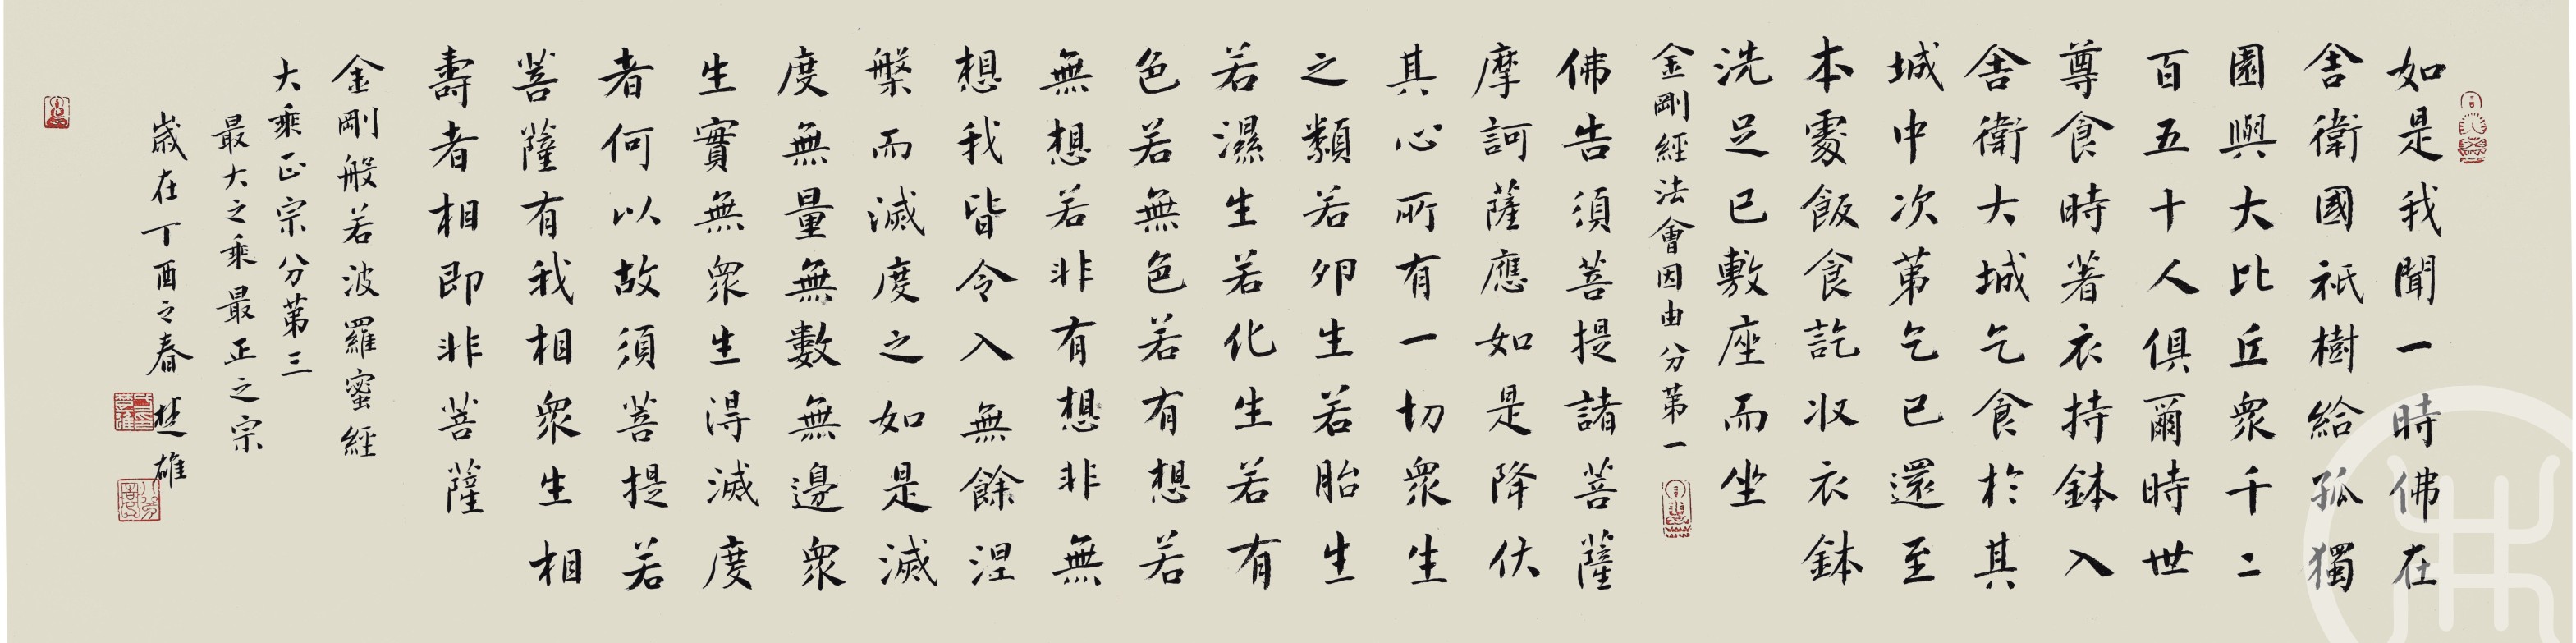 如是我聞一時佛在
舍衛國祇樹給孤獨
園與大比丘衆千二
百五十人俱爾時世
尊食時著衣持鉢入
舍衛大城乞食於其
城中次第乞已還至
本處飯食訖收衣鉢
洗足已敷座而坐
金剛經法會因由分第一
佛告須菩提諸菩薩
摩訶薩應如是降伏
其心所有一切衆生
之類若卵生若胎生
若濕生若化生若有
色若無色若有想若
無想若非有想非無
想我皆令入無餘涅
槃而滅度之如是滅
度無量無數無邊衆
生實無衆生得滅度
者何以故須菩提若
菩薩有我相衆生相
壽者相即非菩薩
金剛般若波羅蜜經
大乘正宗分第三
最大之乘最正之宗
歲在丁酉之春 楚雄